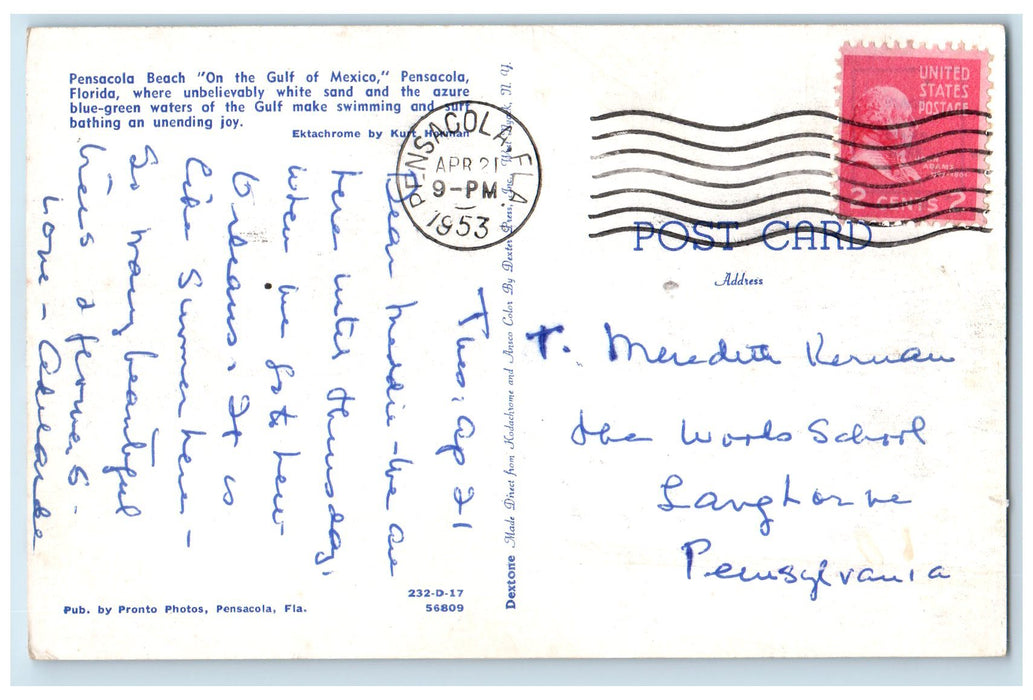 Pensacola Beach "On the Gulf of Mexico," Pensacola,
Florida, where unbelievably white sand and the azure
blue-green waters of the Gulf make swimming and surf
bathing an unending joy.
Ektachrome by Kurt Homan
Tues. Ap 21
Dear Meddie - We are
here until Thursday,
when we go to New
Orleans. It is
like Summer here -
So many beautiful
trees & flowers -
Love - Adelaide
Pub. by Pronto Photos, Pensacola, Fla.
232-D-17
56809
Dextone Made Direct from Kodachrome and Ansco Color By Dexter Press, Inc., West Nyack, N. Y.
PENSACOLA, FLA.
APR 21
9-PM
1953
UNITED
STATES
POSTAGE
ADAMS
2 CENTS 2
POST CARD
Address
T. Meredith Kernan
The Woods School
Langhorne
Pennsylvania